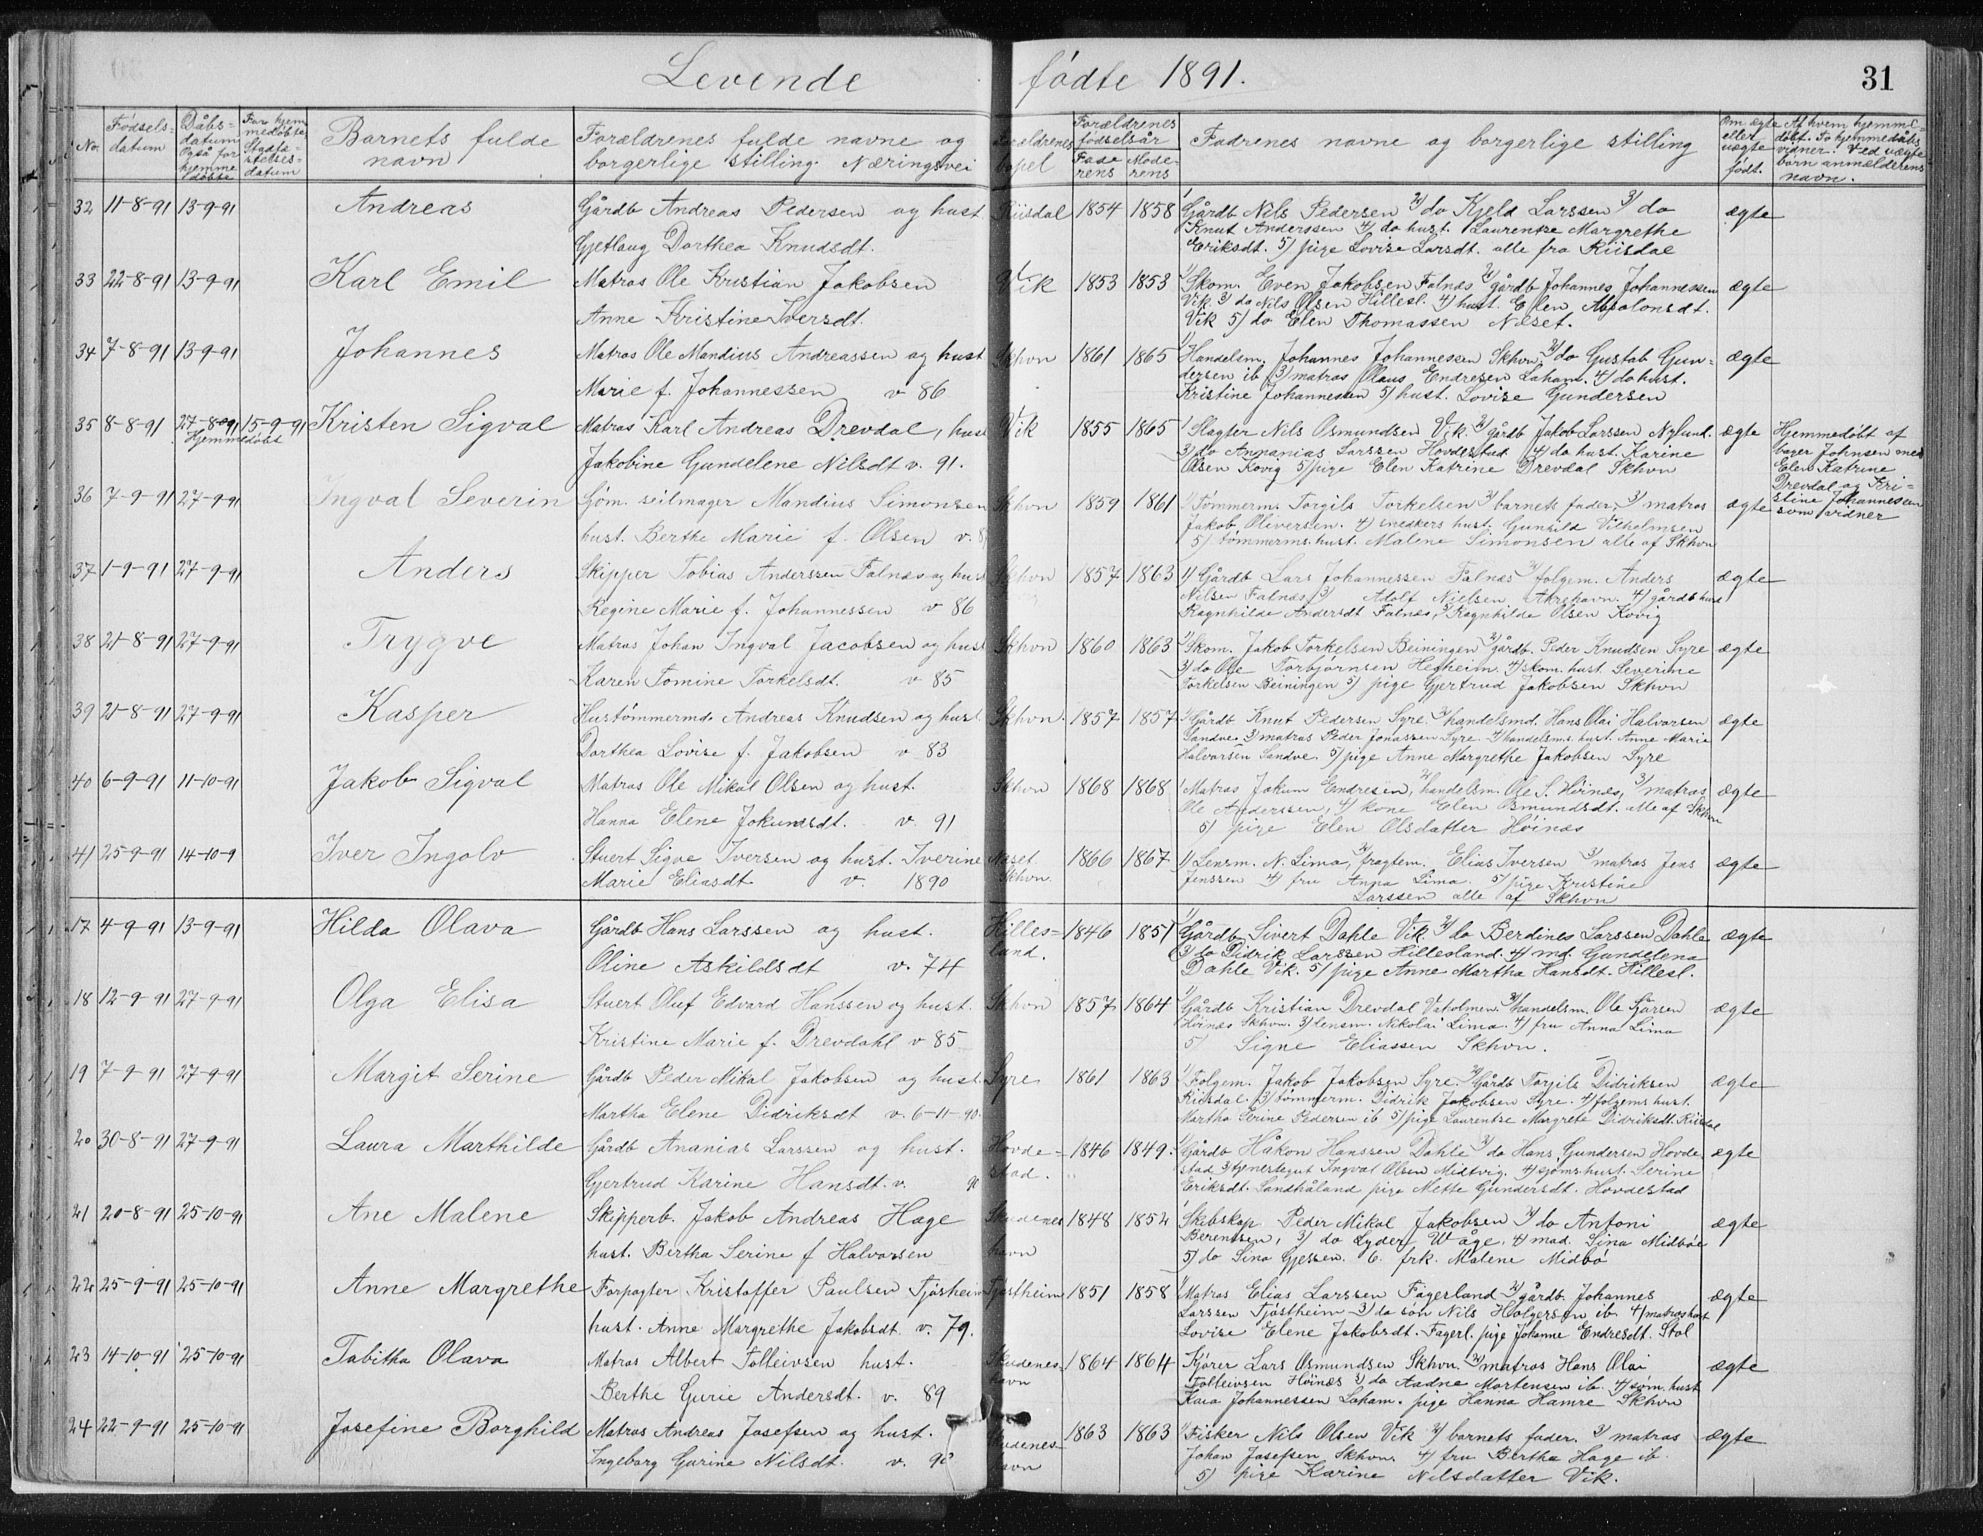 Levende fødte 1891. 31
No. Fødsels-datum Dåbs-datum Også for hjemmedøbte For hjemmedøbte Stadfæstelses-datum Barnets fulde navn Forældrenes fulde navne og borgerlige stilling. Næringsvei Forældrenes bopel Forældrenes fødselsår Faderens Moderens Fadrenes navne og borgerlige stilling Om ægte eller uægte født. Af hvem hjemmedøbt. To hjemmedåbsvidner. Ved uægte børn anmælderens navn.
32 11-8-91 13-9-91 Andreas Gårdb Andreas Pedersen og hust Riisdal 1854 1858 1/ Gårdb Nils Pedersen 2/ do Kjeld Larssen 3/ do ægte
Gjetlaug Dorthea Knudsdt. Knut Anderssen 4/ do hust. Laurentze Margrethe
Eriksdt. 5/ pige Lovise Larsdt. alle fra Riisdal
33 22-8-91 13-9-91 Karl Emil Matros Ole Kristian Jakobsen Vik 1853 1853 1/ Skom. Even Jakobsen Falnæs 2/ gårdb Johannes Johannessen ægte
Anne Kristine Iversdt. Vik 3/ do Nils Olsen Hillesl. 4/ hust. Elen Absolonsdt.
Vik 5/ do Elen Thomassen Næset.
34 7-8-91 13-9-91 Johannes Matros Ole Mandius Andreassen og hust Skhvn 1861 1865 1/ Handelsm. Johannes Johannessen Skhvn. 2/ do Gustab Gun- ægte
Marie f. Johannessen v 86 dersen ib 3/ matros Olaus Endresen Laham. 4/ do hust.
Kristine Johannessen 5/ hust. Lovise Gundersen
35 8-8-91 27-8-91 Hjemmedøbt 15-9-91 Kristen Sigval Matros Karl Andreas Drevdal, hust Vik 1855 1865 1/ Slagter Nils Osmundsen Vik. 2/ gårdb Jakob Larssen Nylund. ægte Hjemmedøbt af
Jakobine Gundelene Nilsdt v. 91. 3/ do Annanias Larssen Hovdestad 4/ do hust. Karine bager Johnsen med
Olsen Kovig 5/ pige Elen Katrine Drevdal Skhvn Elen Katrine
Drevdal og Kri-
stine Johannessen
som vidner
36 7-9-91 27-9-91 Ingval Severin Gjøm. seilmager Mandius Simonsen Skhvn 1859 1861 1/ Tømmerm. Torgils Torkelsen 2/ barnets fader, 3/ matros ægte
hust. Berthe Marie f. Olsen v. Jakob Oliversen. 4/ snedkers hust. Gunhild Vilhelmsen
5/ tømmerms. hust. Malene Simonsen alle af Skhvn
37 1-9-91 27-9-91 Anders Skipper Tobias Anderssen Falnæs og hust Skhvn 1857 1863 1/ Gårdb Lars Johannessen Falnæs 2/ folgem. Anders ægte
Regine Marie f. Johannessen v 86 Nilsen Falnæs, 3/ Adolf Nielsen Akrehavn. 4/ gårdb hust
Ragnhilde Andersdt Falnæs, 5/ Ragnhilde Olsen Kovig
38 21-8-91 27-9-91 Trygve Matros Johan Ingval Jacobsen og hust Skhvn 1860 1863 1/ Skom. Jakob Torkelsen Beiningen 2/ gårdb. Peder Knudsen Syre ægte
Karen Tomine Torkelsdt. v 85 3/ do Ole Torbjørnsen Hegheim. 4/ skom. hust. Severine
Torkelsen Beiningen 5/ pige Gjertrud Jakobsen Skhvn
39 21-8-91 27-9-91 Kasper Hustømmermd. Andreas Knudsen og hust. Skhvn. 1857 1857 1/ Gårdb Knut Pedersen Syre. 2/ handelsmd. Hans Olai Halvorsen ægte
Dorthea Lovise f. Jakobsen v 83 Sandve. 3/ matros Peder Jonassen Syre. 4/ handelsms. hust. Anne Marie
Halvorsen Sandve. 5/ pige Anne Margrethe Jakobsen Syre
40 6-9-91 11-10-91 Jakob Sigval Matros Ole Mikal Olsen og hust. Skhvn 1868 1868 1/ Matros Jakum Endresen, 2/ handelsm. Ole S. Høinæs, 3/ matros ægte
Hanna Elene Jokumsdt. v. 91 Ole Anderssen, 4/ kone Elen Osmundsdt. alle af Skhvn
5/ pige Elen Olsdatter Høinæs
41 25-9-91 14-10-9 Iver Ingolv Stuert Sigve Iversen og hust. Iverine Næset 1866 1867 1/ Lensm. N. Lima, 2/ fragtem. Elias Iversen 3/ matros Jens ægte
Marie Eliasdt v. 1890 Skhvn. Jenssen 4/ fru Anna Lima. 5/ pige Kristine
Larssen alle af Skhvn
17 4-9-91 13-9-91 Hilda Olava Gårdb Hans Larssen og hust. Hilles- 1846 1851 1/ Gårdb Sivert Dahle Vik. 2/ do Berdines Larssen Dahle ægte
Oline Askildsdt v. 74 land. 3/ do Didrik Larssen Hillesland. 4/ md. Gundelena
Dahle Vik. 5/ pige Anne Martha Hansdt. Hillesl.
18 12-9-91 27-9-91 Olga Elisa Stuert Oluf Edvard Hanssen og hust. Skhvn 1857 1864 1/ Gårdb Kristian Drevdal Vaholmen. 2/ handelsm. Ole Sørsen ægte
Kristine Marie f. Drevdahl v 85 Høinæs Skhvn. 3/ lensm. Nikolai Lima. 4/ fru Anna Lima
5/ Signe Eliassen Skhvn.
19 7-9-91 27-9-91 Margit Serine Gårdb Peder Mikal Jakobsen og hust. Syre 1861 1863 1/ Folgem. Jakob Jakobsen Syre. 2/ Gårdb Torjils Didriksen ægte
Martha Elene Didriksdt v. 6-11-90. Riisdal. 3/ tømmerm. Didrik Jakobsen Syre. 4/ folgems hust.
Martha Serine Pedersen ib 5/ pige Laurentse Margrete Didriksdt. Riisdal
20 30-8-91 27-9-91 Laura Marthilde Gårdb Ananias Larssen og hust. Hovde- 1846 1849. 1/ Gårdb Håkon Hanssen Dahle 2/ do Hans Gundersen Hovde ægte
Gjertrud Karine Hansdt. v. stad. stad 3/ tjenestegut Ingval Olsen Midtvig. 4/ sjøms hust. Serine
Eriksdt. Sandhåland pige Mette Gundersdt. Hovdestad
21 20-8-91 25-10-91 Ane Malene Skipperb. Jakob Andreas Hage Skudenes 1848 1852 1/ Skibskap Peder Mikal Jakobsen 2/ do Antoni ægte
hust. Bertha Serine f Halvorsen havn Berentsen, 3/ do Lyder Wåge, 4/ mad. Sina Midbøe
5/ do Sina Gjessen. 6. frk. Malene Midbø
22 25-9-91 25-10-91 Anne Margrethe Forpagter Kristoffer Paulsen Tjøsheim Tjøstheim 1851 1858 1/ Matros Elias Larssen Fagerland 2/ gårdb. Johannes ægte
hust. Anne Margrethe Jakobsdt v. 79. Larssen Tjøstheim 3/ do søn Nils Holgersen ib. 4/ matros hust
Lovise Elene Jakobsdt. Fagerl. pige Johanne Endresdt. Stol
23 14-10-91 25-10-91 Tabitha Olava Matros Albert Tolleivsen hust. Skudenes- 1864 1864 Kjører Lars Osmundsen Skhvn. 2/ matros Hans Olai ægte
Berthe Gurie Andersdt. v. 89 havn Tolleivsen Høinæs 3/ do Aadne Mortensen ib. 4/ søm. hust
Kaia Johannessen Laham. pige Hanna Hamre Skhvn
24 22-9-91 25-10-91 Josefine Borghild Matros Andreas Josefsen og hust. Skudenes- 1863 1863 1/ Fisker Nils Olsen Vik 2/ barnets fader. 3/ matros ægte
Ingeborg Gurine Nilsdt. v. 90 havn Johan Josefsen Skhvn. 4/ fru Bertha Hage ib.
5/ pige Karine Nilsdatter Vik.